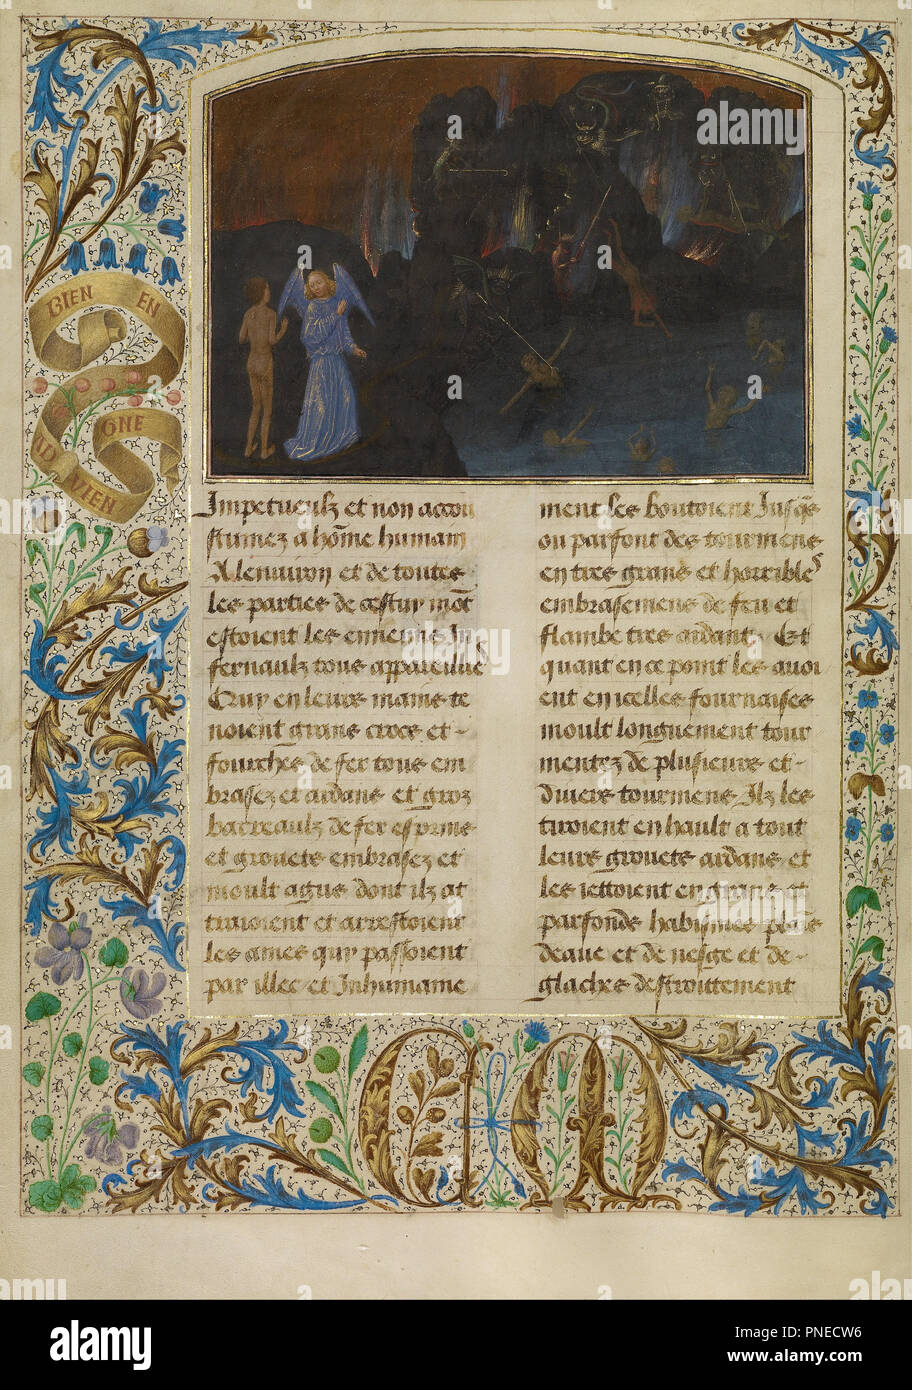 BIEN EN
AD VIEN
GNE
Impetueulz et non accou
stumez a hõme humain
A lenuiron et de toutes
les parties de cestuy mõt
estoient les ennemis In
fernaulz tous appareilliez
Quy en leurs mains te
noient grans crocs et
fourches de fer tous em
brasez et ardans et groz
barreaulz de fer es prins
et grouets embrasez et
moult agus dont ilz at
traioient et arrestoient
les ames quy passoient
par illec et Inhumaine
ment les boutoient Jusq̃s
ou parfont des tourmens
en tres grans et horribles
embrasemens de feu et
flambe tres ardant. Et
quant en ce point les auoi
ent en icelles fournaises
moult longuement tour
mentez de plusieurs et
diuers tourmens Ilz les
tiroient en hault a tout
leurs grouets ardans et
les iettoient en grans et
parfonds habismes plais
deaue et de neige et de
glaches destroittement
C M
alamy
Image ID: PNECW6
www.alamy.com